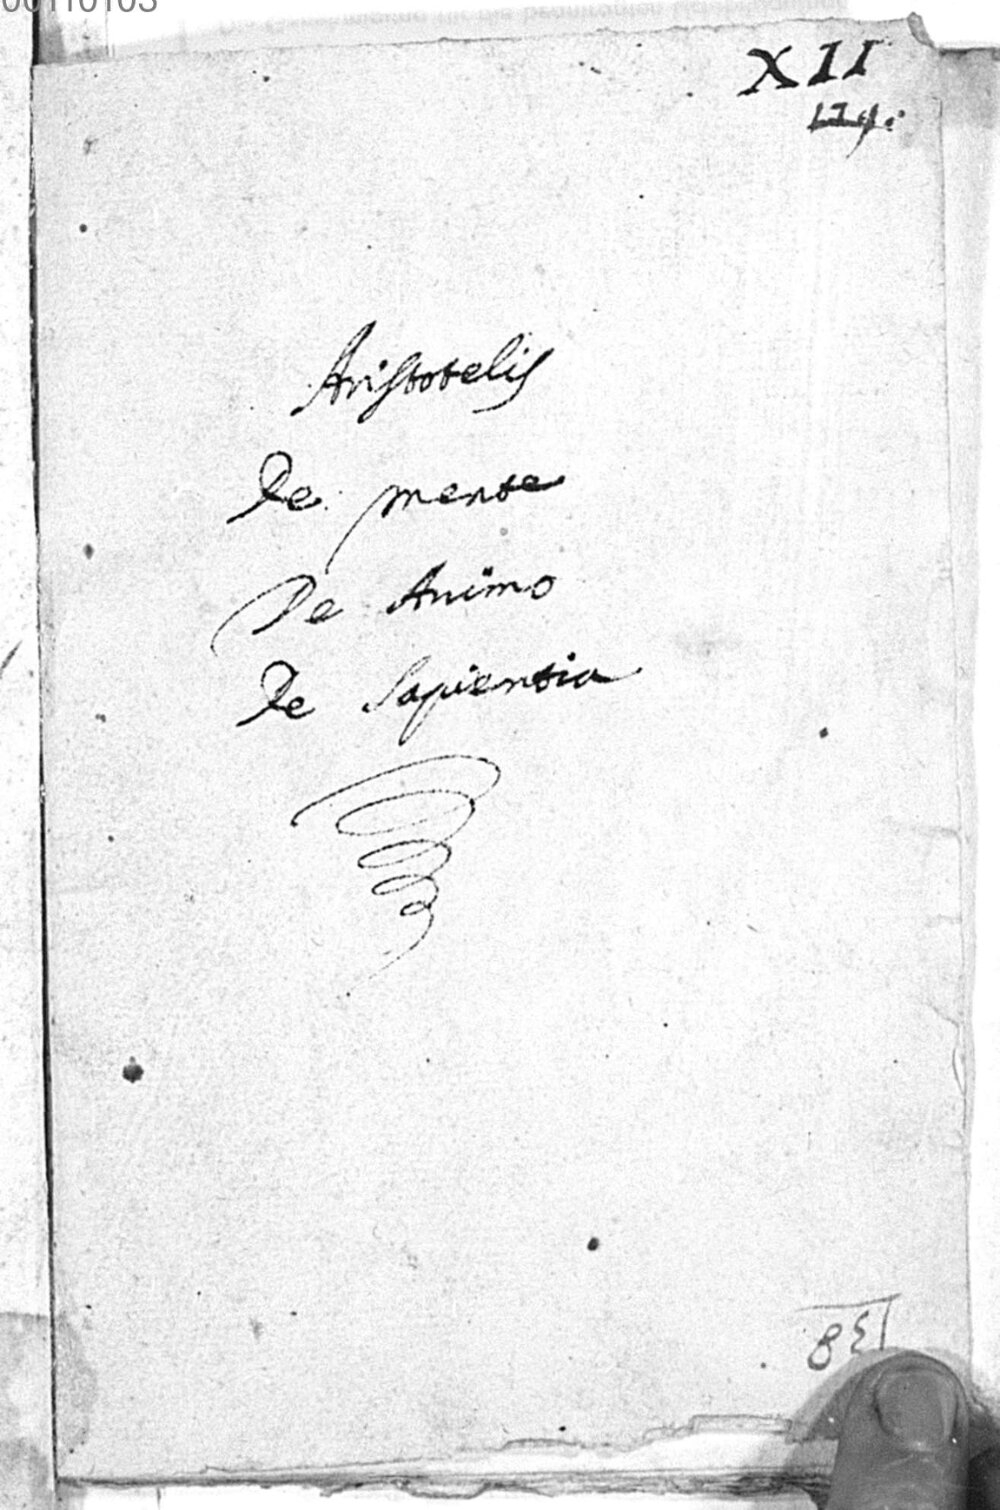 XII
179.
Aristotelis
De mente
De Animo
De Sapientia
138